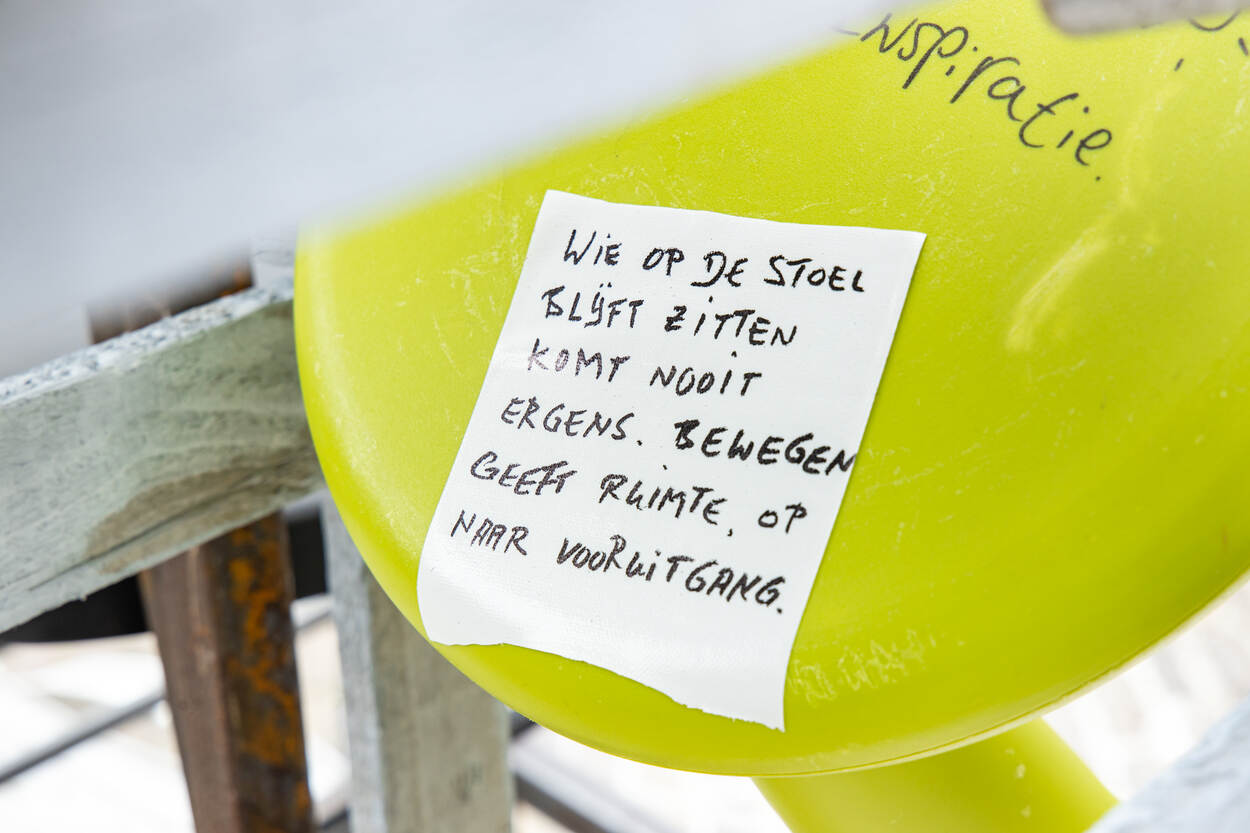 Inspiratie.
WiE OP DE STOEL
BLIJFT ZiTTEN
KOMT NOOiT
ERGENS. BEWEGEN
GEEFT RUiMTE, OP
NAAR VOORUiTGANG.